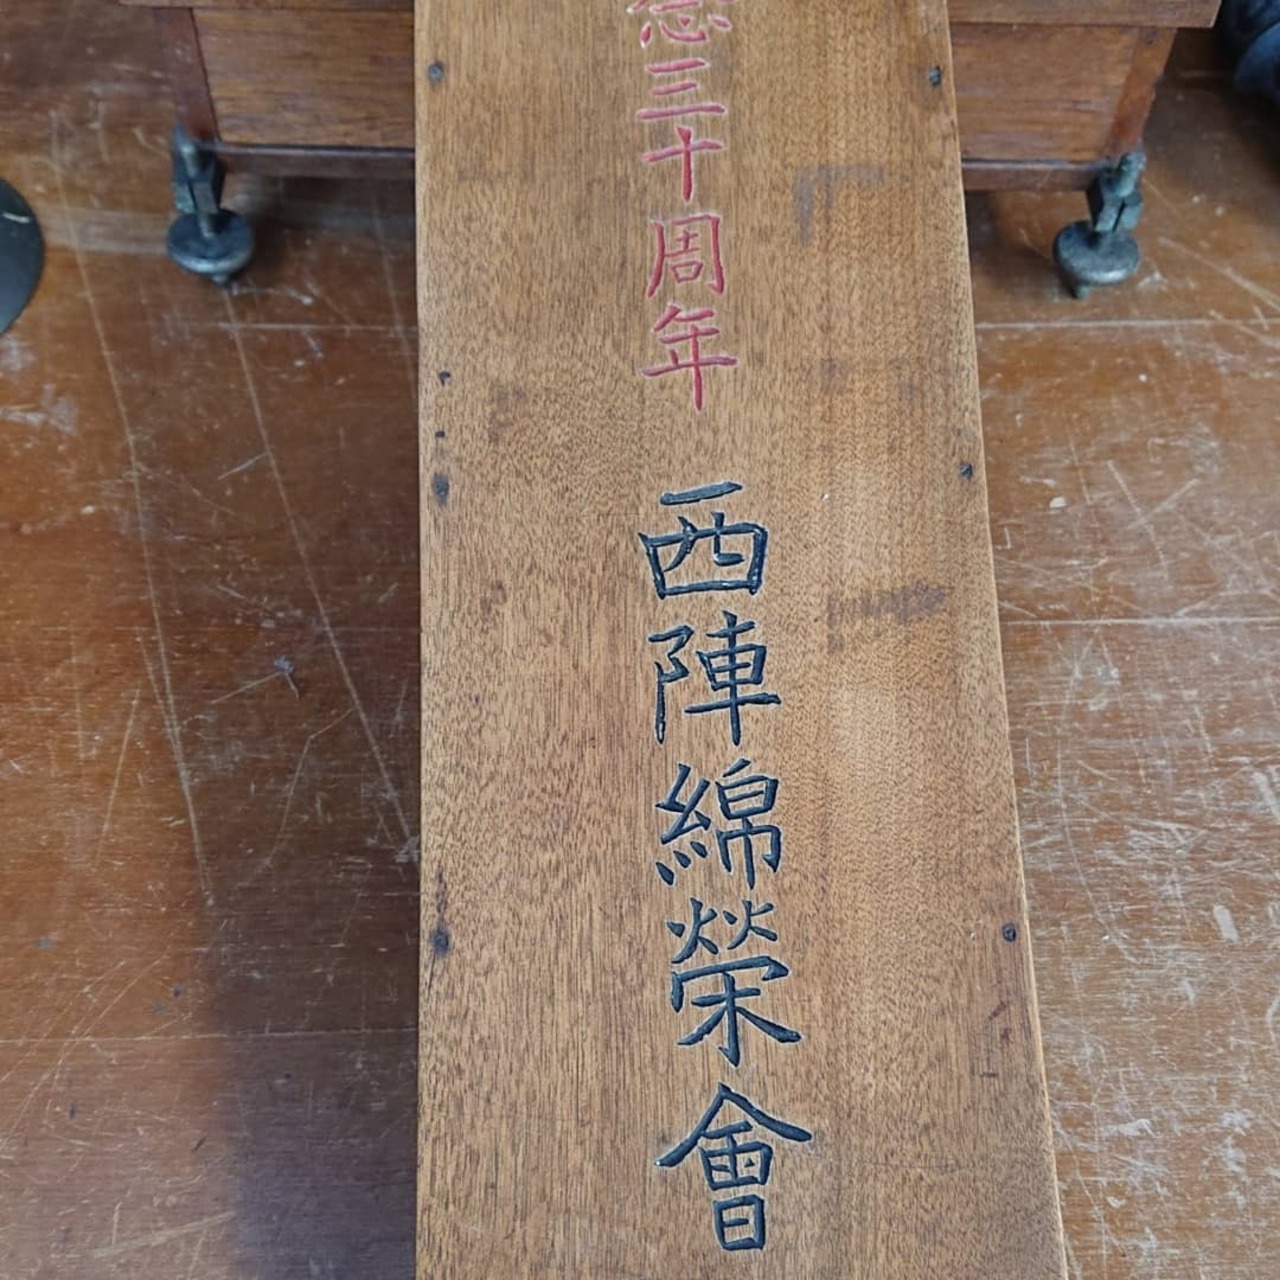 念三十周年
西陣綿榮會